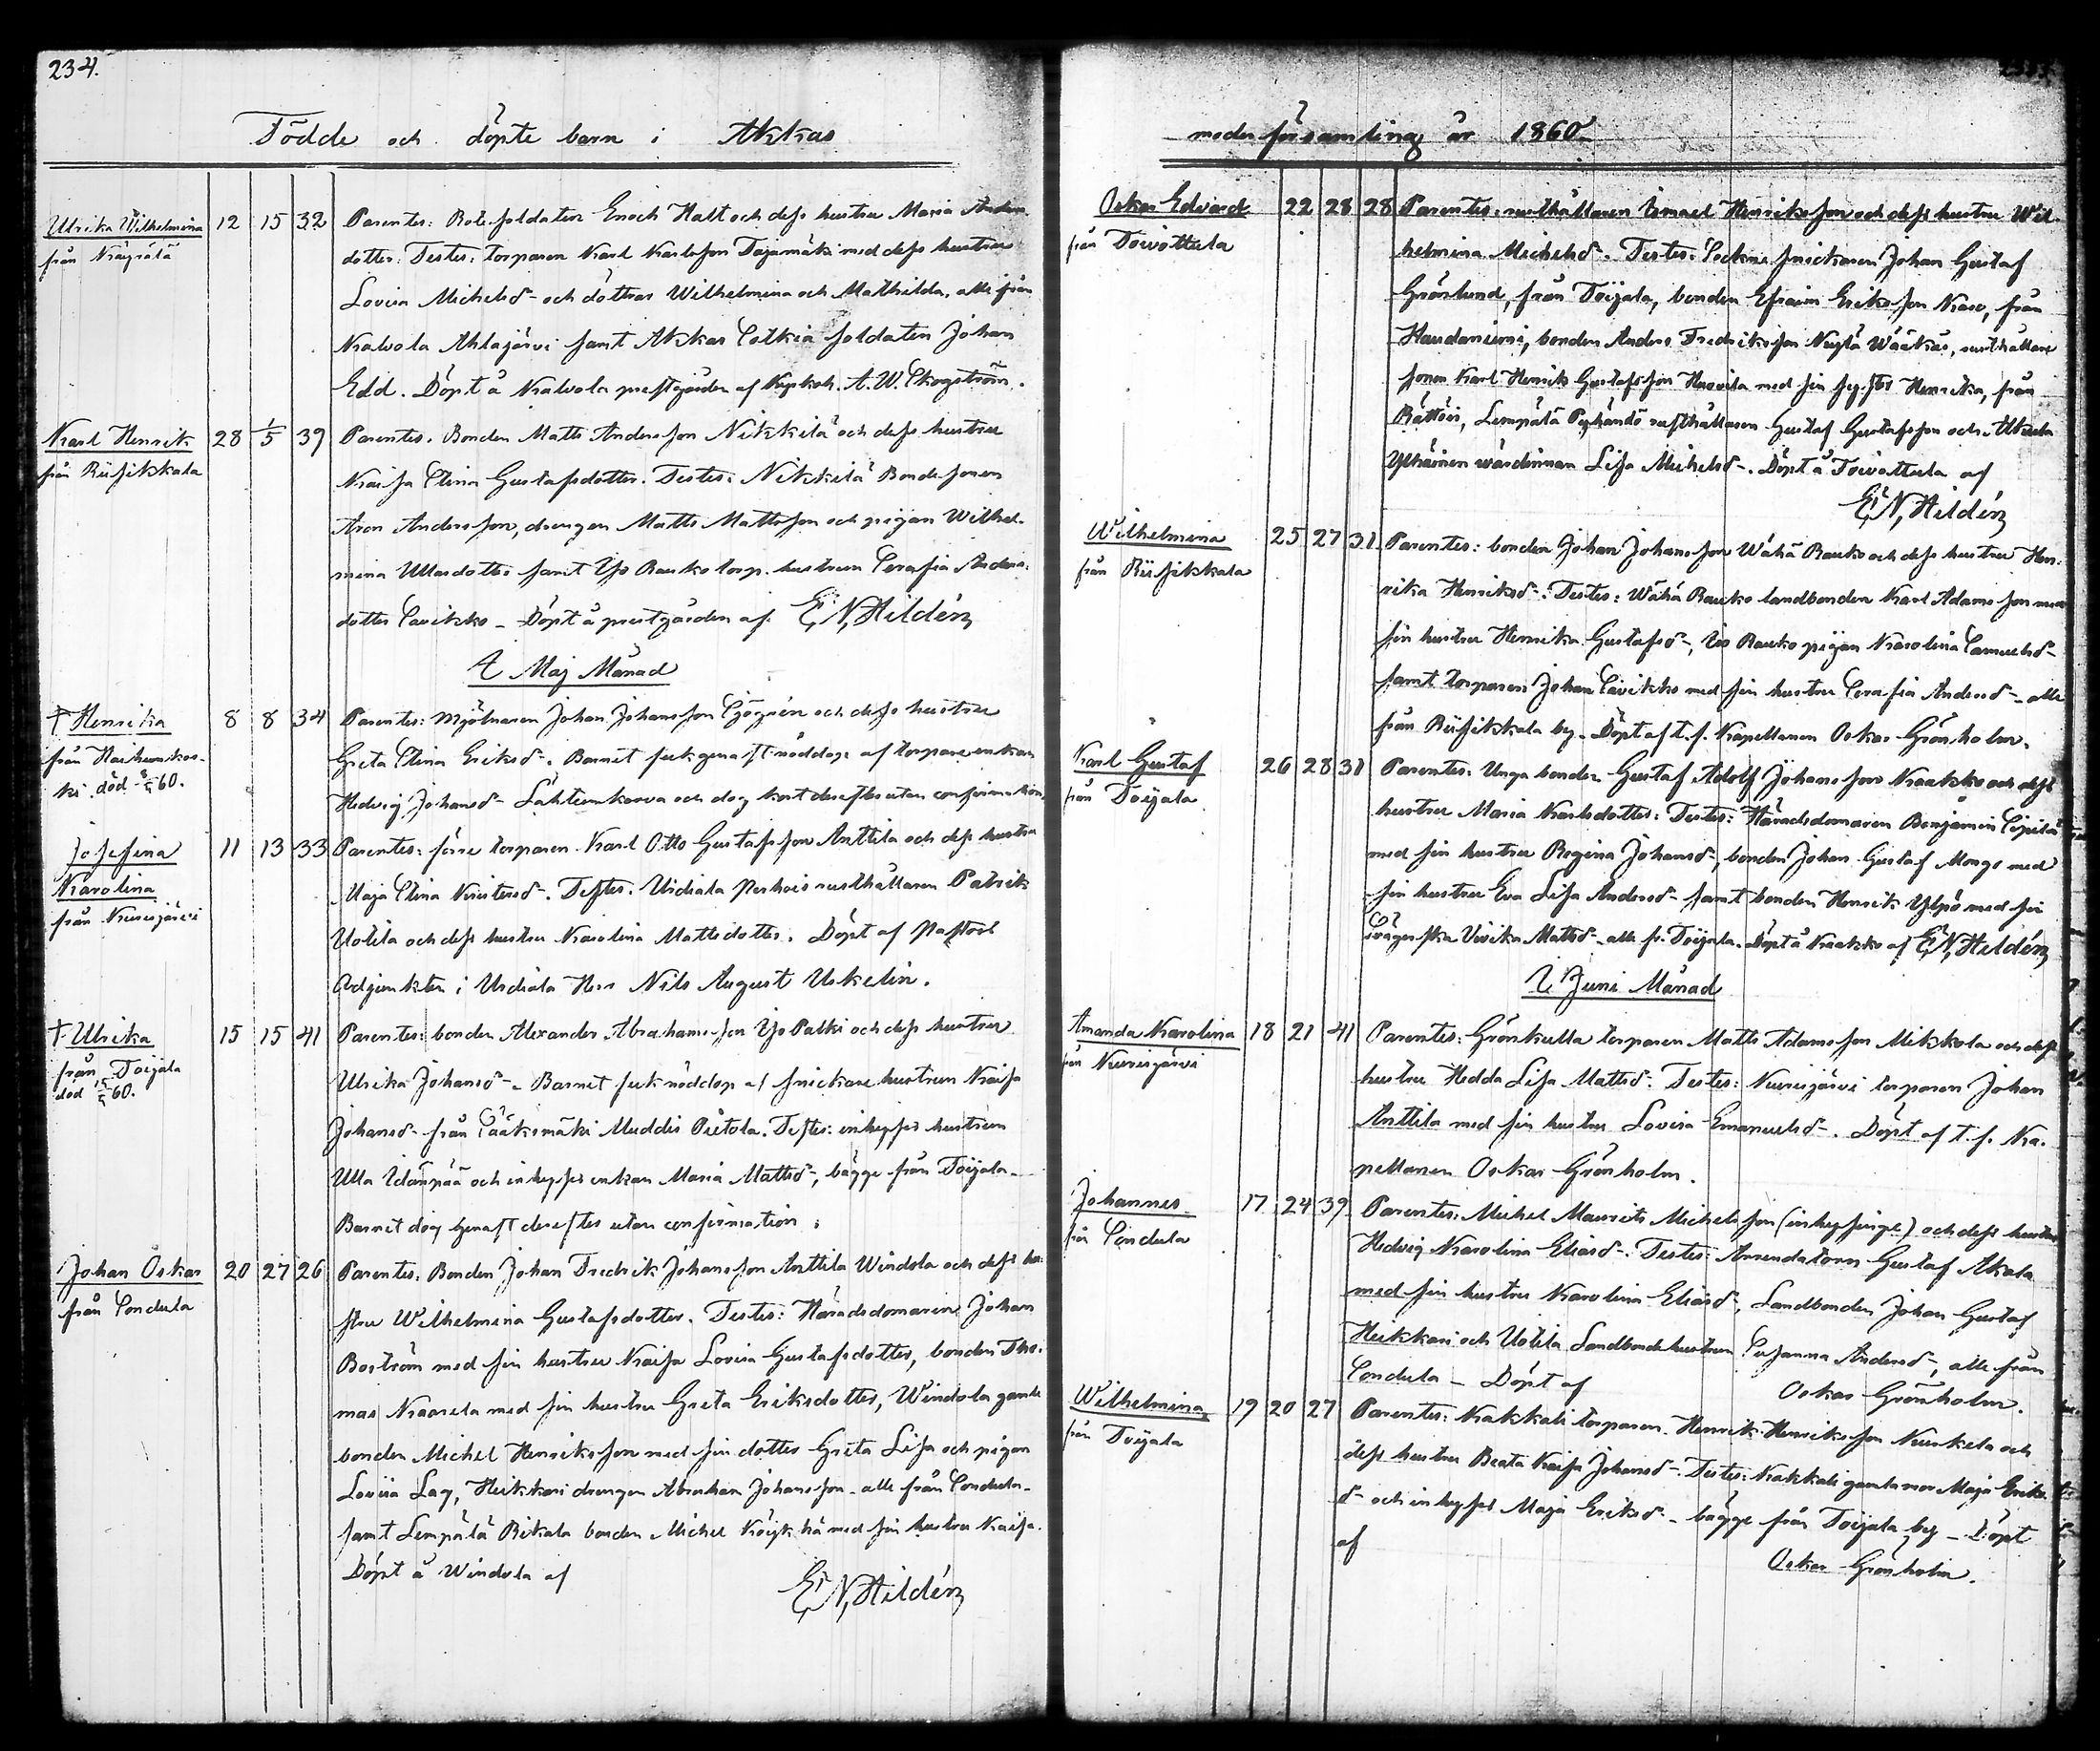 234.
Födde och döpte barn i Akkas
Ulrika Wilhelmina 12 15 32 Parentes: Rote soldaten Enoch Halt och dess hustru Maria Anders
från Kägrälä
dotter. Testes: torparen Karl Karlsson Tojamäki med dess hustru
Lovisa Michelsd- och döttrar Wilhelmina och Mathilda, alle från
Kalvola Ahlajärvi samt Akkas soldaten Johan
Edd. Döpt å Kalvola prestgården af Kyrkoh. A. W. Skogström.
Karl Henrik 28 1/5 39 Parentes. Bonden Matts Andersson Nikkilä och dess hustru
från Riisikkala
Kaisa Stina Gustafsdotter. Testes: Nikkilä Bondesonen
Aron Andersson, drengen Matts Mattsson och pigan Wilhel-
mina Ullasdotter samt Yso Rauko torp. hustrun Serafia Anders-
dotter Savikko - Döpt å prestgården af E. N. Hildén
I Maj Månad
† Henrika 8 8 34 Parentes: Mjölnaren Johan Johansson Sjögrén och dess hustru
från Haihunkos-
ki. död 8/5 60.
Greta Stina Eriksd-. Barnet fick genast nöddop af torpare enkan
Hedvig Johansd- Lahteenkorva och dog kort derefter utan confirmation.
Josefina 11 13 33 Parentes: förre torparen Karl Otto Gustafsson Anttila och dess hustru
Karolina
från Kurisjärvi
Maja Stina Kristersd-. Testes. Urdiala rusthållaren Patrik
Uotila och dess hustru Karolina Mattsdotter. Döpt af Pastors
Adjunkten i Urdiala Herr Nils August Uskelin.
† Ulrika 15 15 41 Parentes: bonden Alexander Abrahamsson Yso Palki och dess hustru
från Toijala
död 15/5 60.
Ulrika Johansd-. Barnet fick nöddop af snickare hustrun Kaisa
Johansd- från Sääksmäki Muddis Pietola. Testes: inhyses hustrun
Ulla Idänpää och inhyses enkan Maria Mattsd-, bägge från Toijala.
Barnet dog genast derefter utan confirmation.
Johan Oskar 20 27 26 Parentes: Bonden Johan Fredrik Johansson Anttila Windola och dess hu-
från Sondula
stru Wilhelmina Gustafsdotter. Testes: Häradsdomaren Johan
Boström med sin hustru Kaisa Lovisa Gustafsdotter, bonden Tho-
mas Kaarela med sin hustru Greta Eriksdotter, Windola gamle
bonden Michel Henriksson med sin dotter Greta Lisa och pigan
Lovisa Lag, Heikkari drengen Abraham Johansson - alle från Sondula -
samt Lempälä Bikala bonden Michel Köykkä med sin hustru Kaisa.
Döpt å Windola af
E. N. Hildén
moderförsamling år 1860.
Oskar Edvard 22 28 28 Parentes: rusthållaren Ismael Henriksson och dess hustru Wil-
från Toivottula
helmina Michelsd-. Testes: Sockne snickaren Johan Gustaf
Grönlund, från Toijala, bonden Efraim Eriksson Karo, från
Haudaniemi, bonden Anders Fredriksson Nuylä Wäräkäs, rusthållare
sonen Karl Henrik Gustafsson Huovila med sin syster Henrika, från
Rättöis, Lempälä rusthållaren Gustaf Gustafsson och Akkula
Ylhäinen wärdinnan Lisa Michelsd-. Döpt å Toivottula af
E. N. Hildén
Wilhelmina 25 27 31 Parentes: bonden Johan Johansson Wähä Rauko och dess hustru Hen-
från Riisikkala
rika Henriksd-. Testes: Wähä Rauko landbonden Karl Adamsson med
sin hustru Henrika Gustafsd-, Yso Rauko pigan Karolina Samuelsd-
samt torparen Johan Savikko med sin hustru Serafia Andersd- alle
från Riisikkala by. Döpt af t. f. Kapellanen Oskar Grönholm.
Karl Gustaf 26 28 31 Parentes: Unga bonden Gustaf Adolf Johansson Kaakko och dess
från Toijala
hustru Maria Karlsdotter. Testes: Häradsdomaren Benjamin
med sin hustru Regina Johansd-, bonden Johan Gustaf Monge med
sin hustru Eva Lisa Andersd- samt bonden Henrik Ylpö med sin
Svägerska Ulrika Mattsd- alle fr. Toijala. Döpt å Kaakko af E. N. Hildén
I Juni Månad
Amanda Karolina 18 21 41 Parentes: Grönkulla torparen Matts Adamsson Mikkola och dess
från Kurisjärvi
hustru Hedda Lisa Mattsd-. Testes: Kurisjärvi torparen Johan
Anttila med sin hustru Lovisa Emanuelsd-. Döpt af t. f. Ka-
pellanen Oskar Grönholm.
Johannes 17 24 39 Parentes: Michel Maurits Michelsson (inhysinge) och dess hustru
från Sondula
Hedvig Karolina Eliasd-. Testes: Arrendatorn Gustaf Akala
med sin hustru Karolina Eliasd-, Landbonden Johan Gustaf
Heikkari och Uotila Landbondehustrun Susanna Andersd-, alle från
Sondula - Döpt af Oskar Grönholm.
Wilhelmina 19 20 27 Parentes: Kakkali torparen Henrik Henriksson Kurkela och
från Toijala
dess hustru Beata Kaisa Johansd-. Testes: Kakkali gamla mor Maja Eriks-
d- och inhyses Maja Eriksd- bägge från Toijala by - Döpt
af Oskar Grönholm.